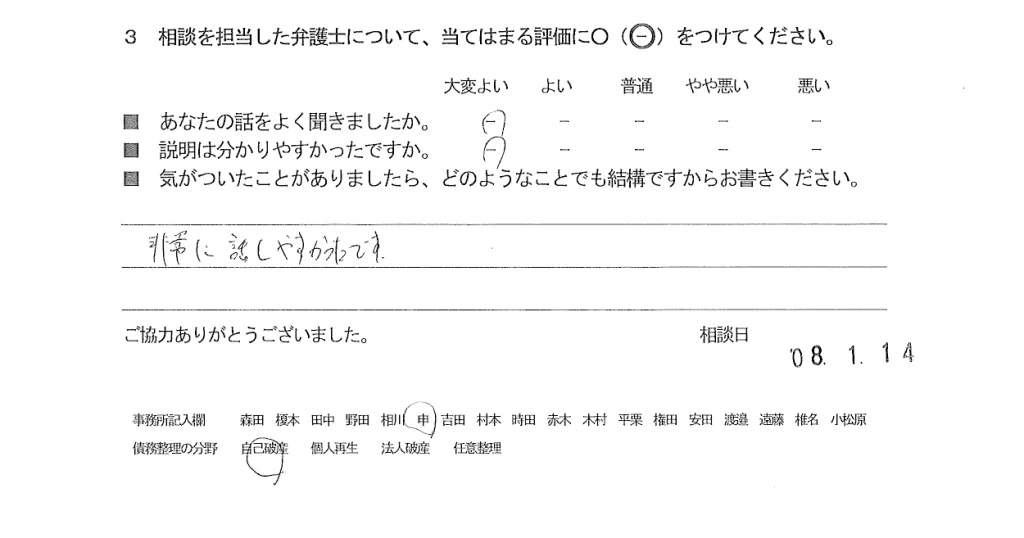 3　相談を担当した弁護士について、当てはまる評価に○（㊀）をつけてください。
大変よい　よい　普通　やや悪い　悪い
■　あなたの話をよく聞きましたか。　－　－　－　－　－
■　説明は分かりやすかったですか。　－　－　－　－　－
■　気がついたことがありましたら、どのようなことでも結構ですからお書きください。
非常に話しやすかったです。
ご協力ありがとうございました。　相談日
'08.1.14
事務所記入欄　森田　榎本　田中　野田　相川　申　吉田　村本　時田　赤木　木村　平栗　権田　安田　渡邉　遠藤　椎名　小松原
債務整理の分野　自己破産　個人再生　法人破産　任意整理